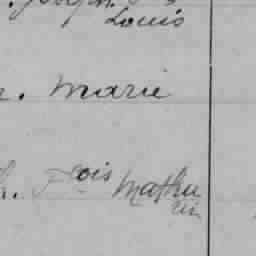 Louis
. Marie
Fcois Mathu
rin